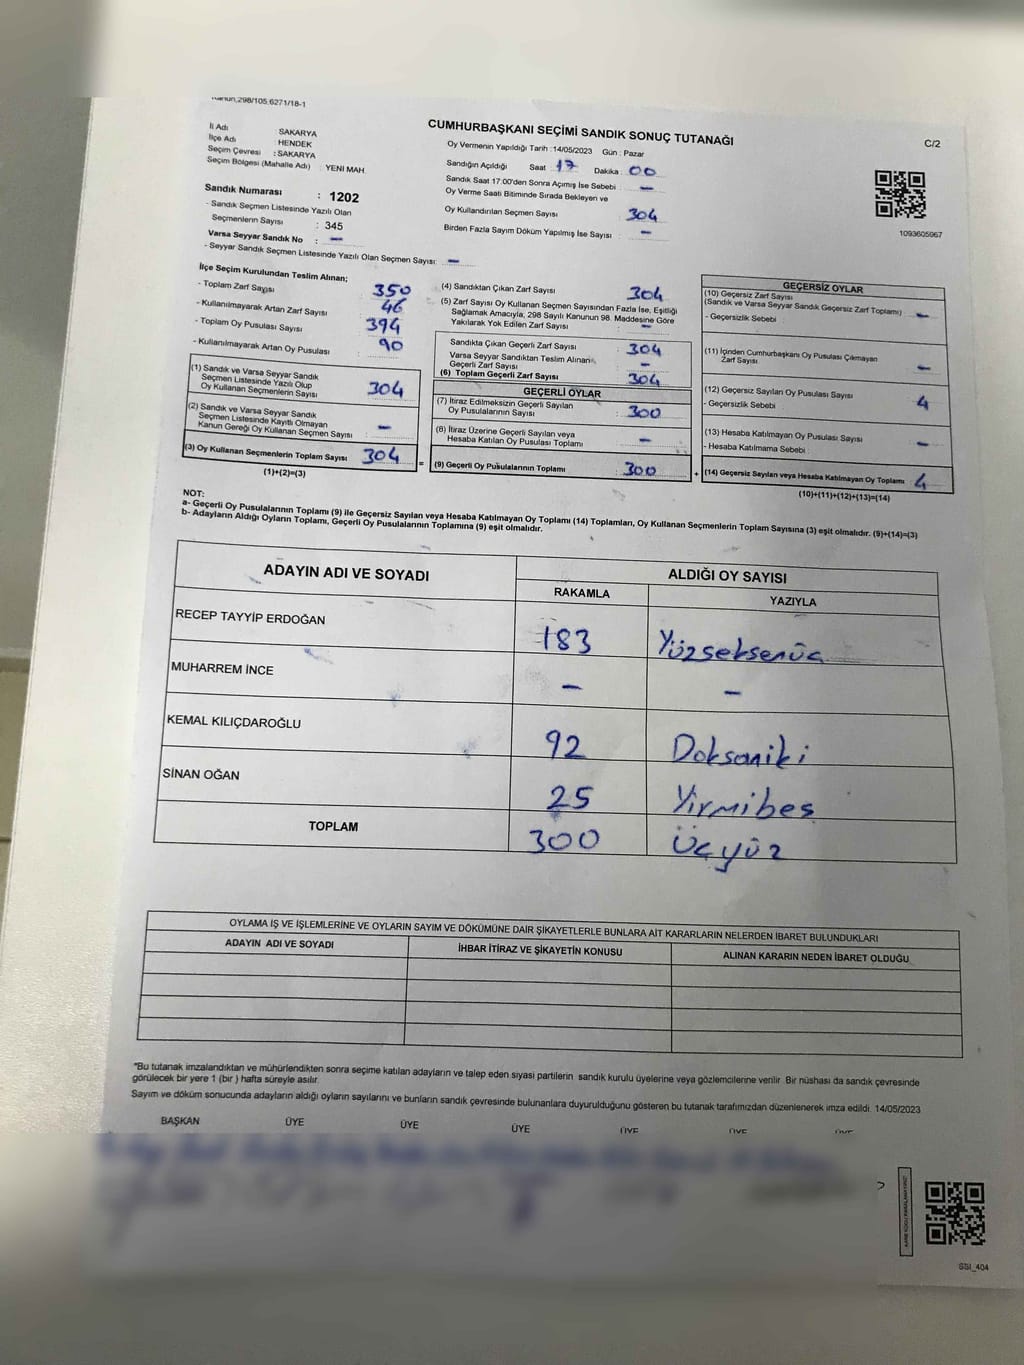 Kanun,298/105,6271/18-1
CUMHURBAŞKANI SEÇİMİ SANDIK SONUÇ TUTANAĞI
C/2
İl Adı : SAKARYA
İlçe Adı : HENDEK
Seçim Çevresi : SAKARYA
Seçim Bölgesi (Mahalle Adı) : YENİ MAH.
Sandık Numarası : 1202
- Sandık Seçmen Listesinde Yazılı Olan
Seçmenlerin Sayısı : 345
Varsa Seyyar Sandık No : –
- Seyyar Sandık Seçmen Listesinde Yazılı Olan Seçmen Sayısı: –
Oy Vermenin Yapıldığı Tarih :14/05/2023 Gün : Pazar
Sandığın Açıldığı Saat 17 Dakika : 00
Sandık Saat 17:00'den Sonra Açımış İse Sebebi : –
Oy Verme Saati Bitiminde Sırada Bekleyen ve
Oy Kullandırılan Seçmen Sayısı : 304
Birden Fazla Sayım Döküm Yapılmış İse Sayısı : –
1093605967
İlçe Seçim Kurulundan Teslim Alınan;
- Toplam Zarf Sayısı : 350
- Kullanılmayarak Artan Zarf Sayısı : 46
- Toplam Oy Pusulası Sayısı : 394
- Kullanılmayarak Artan Oy Pusulası : 90
(1) Sandık ve Varsa Seyyar Sandık
Seçmen Listesinde Yazılı Olup
Oy Kullanan Seçmenlerin Sayısı : 304
(2) Sandık ve Varsa Seyyar Sandık
Seçmen Listesinde Kayıtlı Olmayan
Kanun Gereği Oy Kullanan Seçmen Sayısı : –
(3) Oy Kullanan Seçmenlerin Toplam Sayısı : 304
(1)+(2)=(3)
=
(4) Sandıktan Çıkan Zarf Sayısı : 304
(5) Zarf Sayısı Oy Kullanan Seçmen Sayısından Fazla İse, Eşitliği
Sağlamak Amacıyla; 298 Sayılı Kanunun 98. Maddesine Göre
Yakılarak Yok Edilen Zarf Sayısı : –
Sandıkta Çıkan Geçerli Zarf Sayısı : 304
Varsa Seyyar Sandıktan Teslim Alınan
Geçerli Zarf Sayısı : –
(6) Toplam Geçerli Zarf Sayısı : 304
GEÇERLİ OYLAR
(7) İtiraz Edilmeksizin Geçerli Sayılan
Oy Pusulalarının Sayısı : 300
(8) İtiraz Üzerine Geçerli Sayılan veya
Hesaba Katılan Oy Pusulası Toplamı : –
(9) Geçerli Oy Pusulalarının Toplamı : 300
+
GEÇERSİZ OYLAR
(10) Geçersiz Zarf Sayısı
(Sandık ve Varsa Seyyar Sandık Geçersiz Zarf Toplamı) : –
- Geçersizlik Sebebi :
(11) İçinden Cumhurbaşkanı Oy Pusulası Çıkmayan
Zarf Sayısı : –
(12) Geçersiz Sayılan Oy Pusulası Sayısı : 4
- Geçersizlik Sebebi :
(13) Hesaba Katılmayan Oy Pusulası Sayısı : –
- Hesaba Katılmama Sebebi :
(14) Geçersiz Sayılan veya Hesaba Katılmayan Oy Toplamı : 4
(10)+(11)+(12)+(13)=(14)
NOT:
a- Geçerli Oy Pusulalarının Toplamı (9) ile Geçersiz Sayılan veya Hesaba Katılmayan Oy Toplamı (14) Toplamları, Oy Kullanan Seçmenlerin Toplam Sayısına (3) eşit olmalıdır. (9)+(14)=(3)
b- Adayların Aldığı Oyların Toplamı, Geçerli Oy Pusulalarının Toplamına (9) eşit olmalıdır.
ADAYIN ADI VE SOYADI
ALDIĞI OY SAYISI
RAKAMLA YAZIYLA
RECEP TAYYİP ERDOĞAN 183 Yüzseksenüç
MUHARREM İNCE – –
KEMAL KILIÇDAROĞLU 92 Doksaniki
SİNAN OĞAN 25 Yirmibeş
TOPLAM 300 Üçyüz
OYLAMA İŞ VE İŞLEMLERİNE VE OYLARIN SAYIM VE DÖKÜMÜNE DAİR ŞİKAYETLERLE BUNLARA AİT KARARLARIN NELERDEN İBARET BULUNDUKLARI
ADAYIN ADI VE SOYADI İHBAR İTİRAZ VE ŞİKAYETİN KONUSU ALINAN KARARIN NEDEN İBARET OLDUĞU
*Bu tutanak imzalandıktan ve mühürlendikten sonra seçime katılan adayların ve talep eden siyasi partilerin sandık kurulu üyelerine veya gözlemcilerine verilir. Bir nüshası da sandık çevresinde
görülecek bir yere 1 (bir ) hafta süreyle asılır.
Sayım ve döküm sonucunda adayların aldığı oyların sayılarını ve bunların sandık çevresinde bulunanlara duyurulduğunu gösteren bu tutanak tarafımızdan düzenlenerek imza edildi. 14/05/2023
BAŞKAN ÜYE ÜYE ÜYE ÜYE ÜYE ÜYE
SSI_404